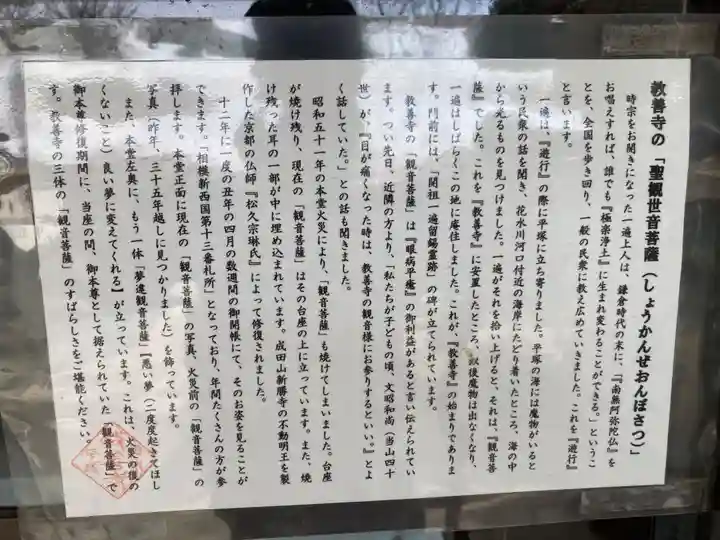 教善寺の「聖観世音菩薩（しょうかんぜおんぼさつ）」
時宗をお開きになった一遍上人は、鎌倉時代の末に、「『南無阿弥陀仏』を
お唱えすれば、誰でも『極楽浄土』に生まれ変わることができる。」というこ
とを、全国を歩き回り、一般の民衆に教え広めていきました。これを『遊行』
と言います。
一遍は、『遊行』の際に平塚に立ち寄りました。平塚の海には魔物がいると
いう民衆の話を聞き、花水川河口付近の海岸にたどり着いたところ、海の中
から光るものを見つけました。一遍がそれを拾い上げると、それは、『観音菩
薩』でした。これを『教善寺』に安置したところ、以後魔物は出なくなり、
一遍はしばらくこの地に庵住しました。これが、『教善寺』の始まりでありま
す。門前には、「開祖一遍留錫霊跡」の碑が立てられています。
教善寺の「観音菩薩」は『眼病平癒』の御利益があると言い伝えられてい
ます。つい先日、近隣の方より、「私たちが子どもの頃、文昭和尚（当山四十
世）が、『目が痛くなった時は、教善寺の観音様にお参りするといい。』とよ
く話していた。」との話も聞きました。
昭和五十一年の本堂火災により、「観音菩薩」も焼けてしまいました。台座
が焼け残り、現在の「観音菩薩」はその台座の上に立っています。また、焼
け残った耳の一部が中に埋め込まれています。成田山新勝寺の不動明王を製
作した京都の仏師『松久宗琳氏』によって修復されました。
十二年に一度の丑年の四月の数週間の御開帳にて、そのお姿を見ることが
できます。「相模新西国第十三番札所」となっており、年間たくさんの方が参
拝します。本堂正面に現在の「観音菩薩」の写真、火災前の「観音菩薩」の
写真（昨年、三十五年越しに見つかりました）を飾っています。
また、本堂左奥に、もう一体「夢違観音菩薩」『悪い夢（二度度起きてほし
くないこと）良い夢に変えてくれる』が立っています。これは、火災の後の
御本尊修復期間に、当座の間、御本尊として据えられていた「観音菩薩」で
す。教善寺の三体の「観音菩薩」のすばらしさをご堪能ください。